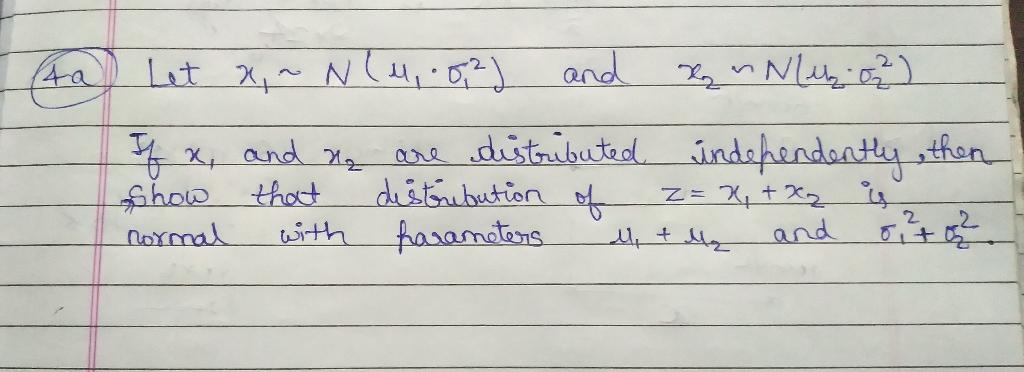 4a Let x₁ ~ N(μ₁, σ₁²) and x₂ ~ N(μ₂, σ₂²)
If x₁ and x₂ are distributed independently, then
Show that distribution of z = x₁ + x₂ is
normal with parameters μ₁ + μ₂ and σ₁² + σ₂².